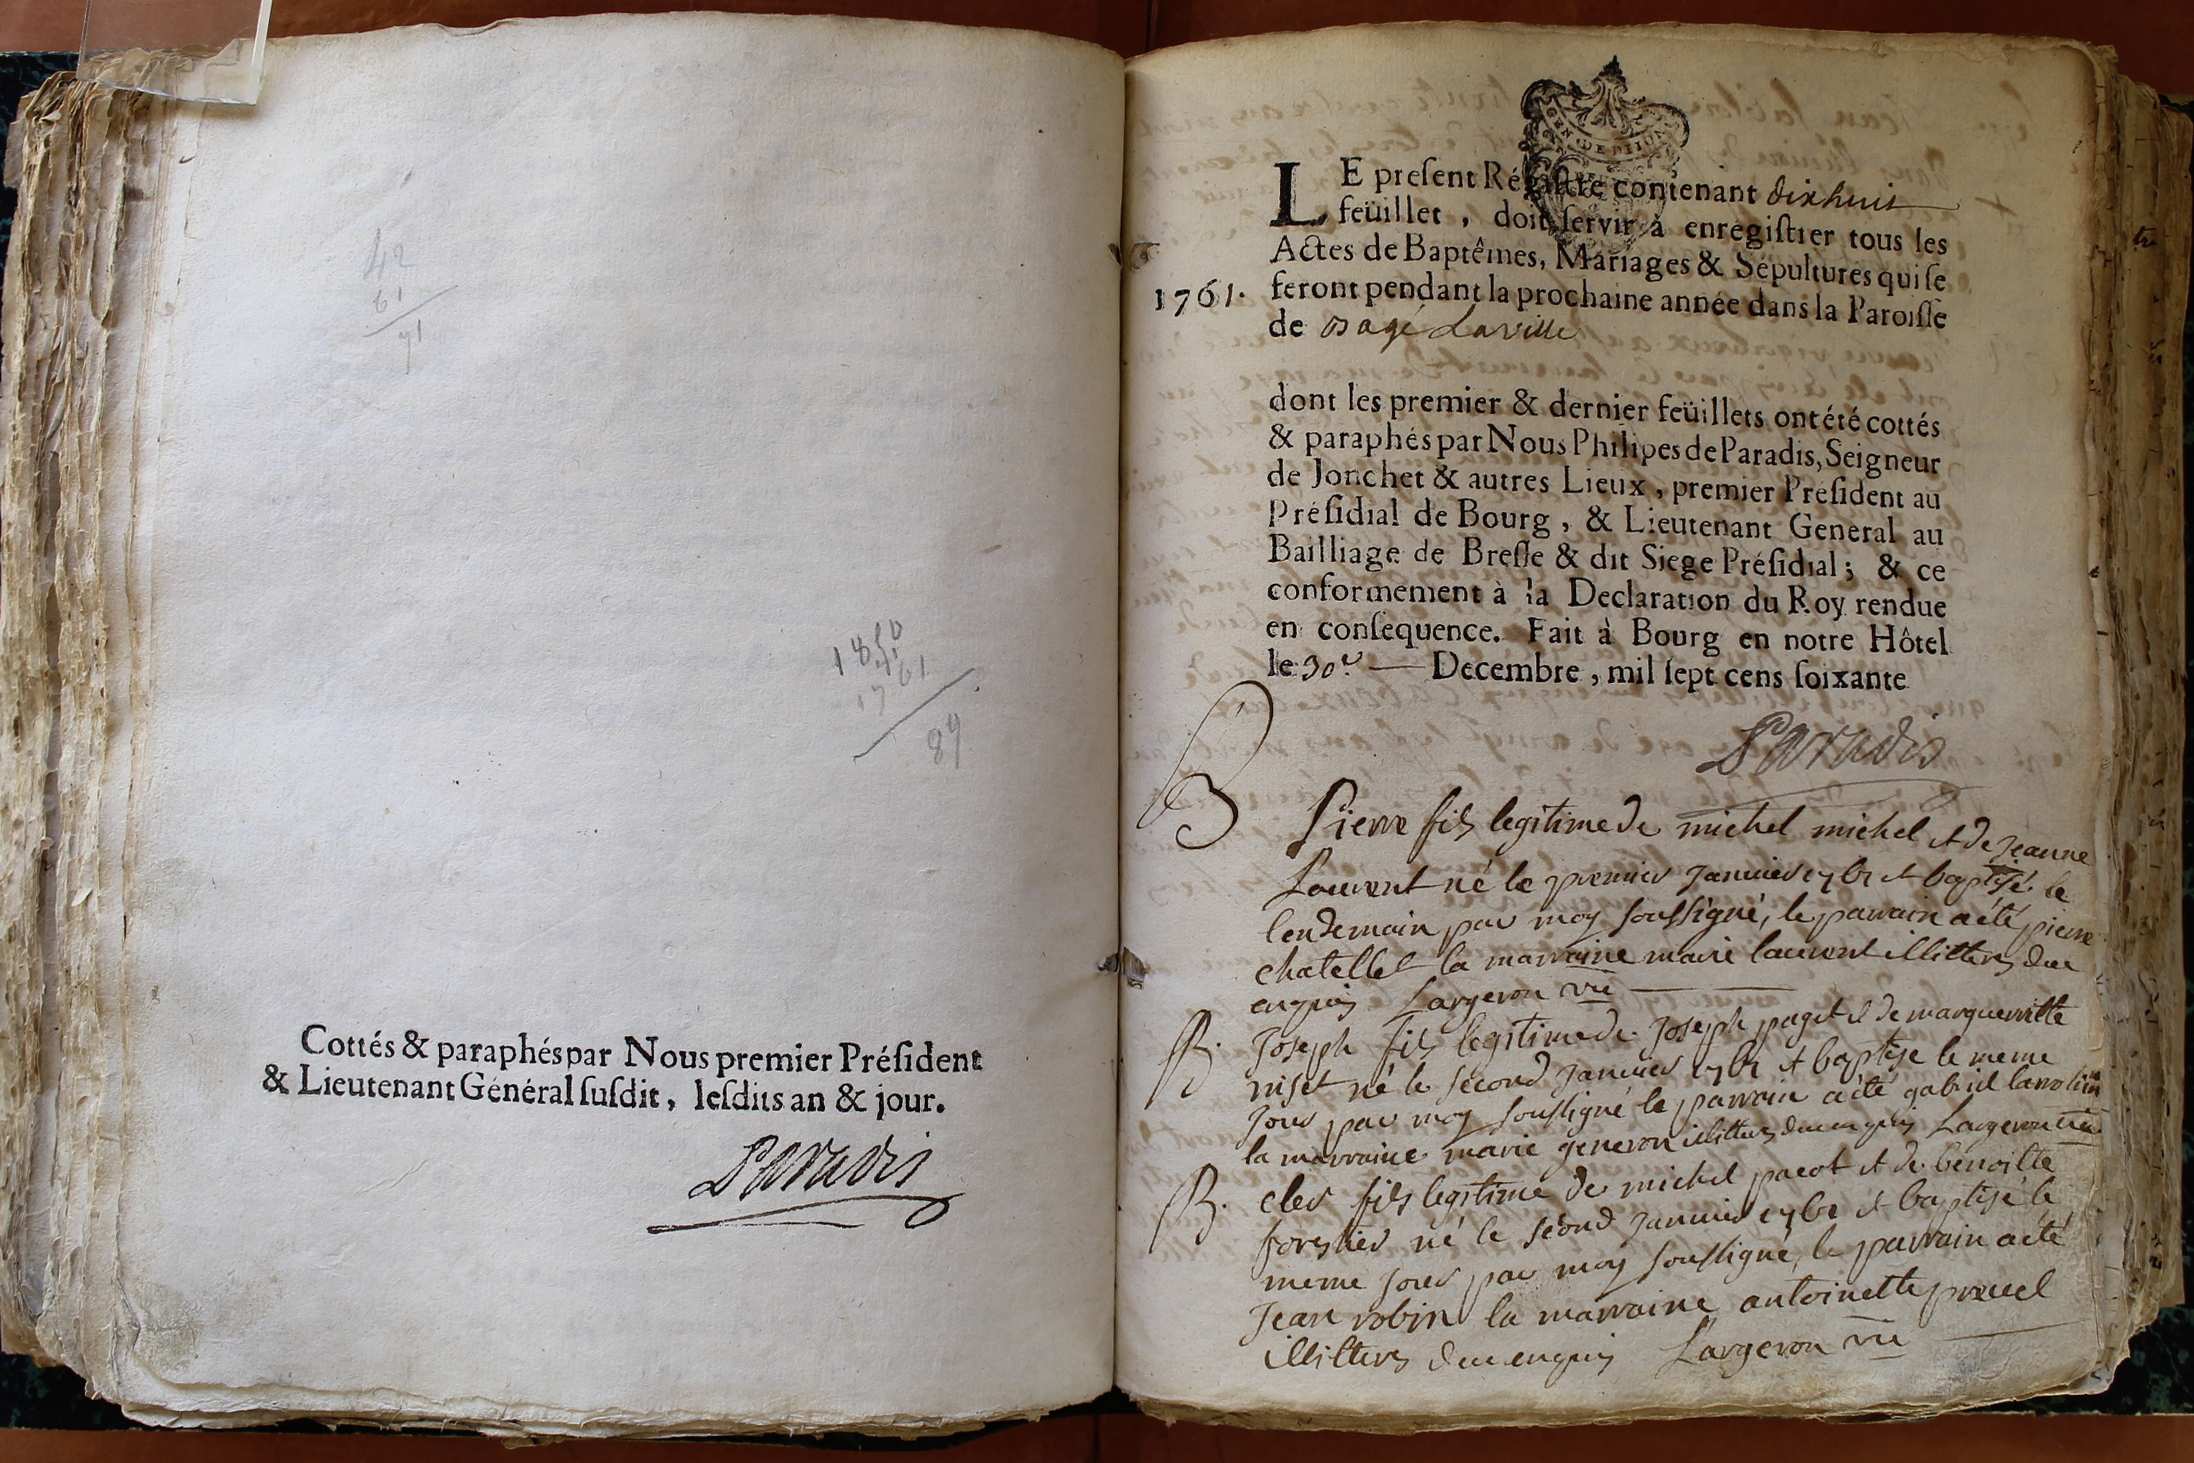 42
61
71
1850
1761
89
Cottés & paraphés par Nous premier Préſident
& Lieutenant Général ſuſdit, leſdits an & jour.
Paradis
LE preſent Régiſtre contenant dixhuit
feüillet, doit ſervir à enregiſtrer tous les
Actes de Baptêmes, Mariages & Sépultures qui ſe
1761. feront pendant la prochaine année dans la Paroiſſe
de Bagé Laville
dont les premier & dernier feüillets ont été cottés
& paraphés par Nous Philipes de Paradis, Seigneur
de Jonchet & autres Lieux, premier Préſident au
Préſidial de Bourg, & Lieutenant General au
Bailliage de Breſſe & dit Siege Préſidial; & ce
conformement à la Declaration du Roy rendue
en conſequence. Fait à Bourg en notre Hôtel
le 30e Decembre, mil ſept cens ſoixante
Paradis
B Pierre fils legitime de michel michel et de jeanne
Laurent né le premier janvier 1761 et baptisé le
lendemain par moy soussigné, le parrain a été pierre
chatellet la marraine marie laurent illitteres due
enquis Largeron vic
B. Joseph fils legitime de Joseph paget et de margueritte
niset né le second janvier 1761 et baptise le meme
jour par moy soussigné le parrain a été gabriel
la marraine marie generon illitteres due enquis Largeron vic
B. cler fils legitime de michel pacot et de benoitte
forestier né le second janvier 1761 et baptisé le
meme jour par moy soussigné, le parrain a été
jean robin la marraine antoinette
illitteres due enquis Largeron vic